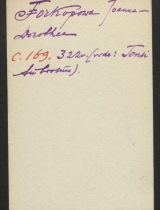 Forkopowa Joanna-
Dorothea
C. 169. 322v. (vide: Tonsi
Ambrosius).